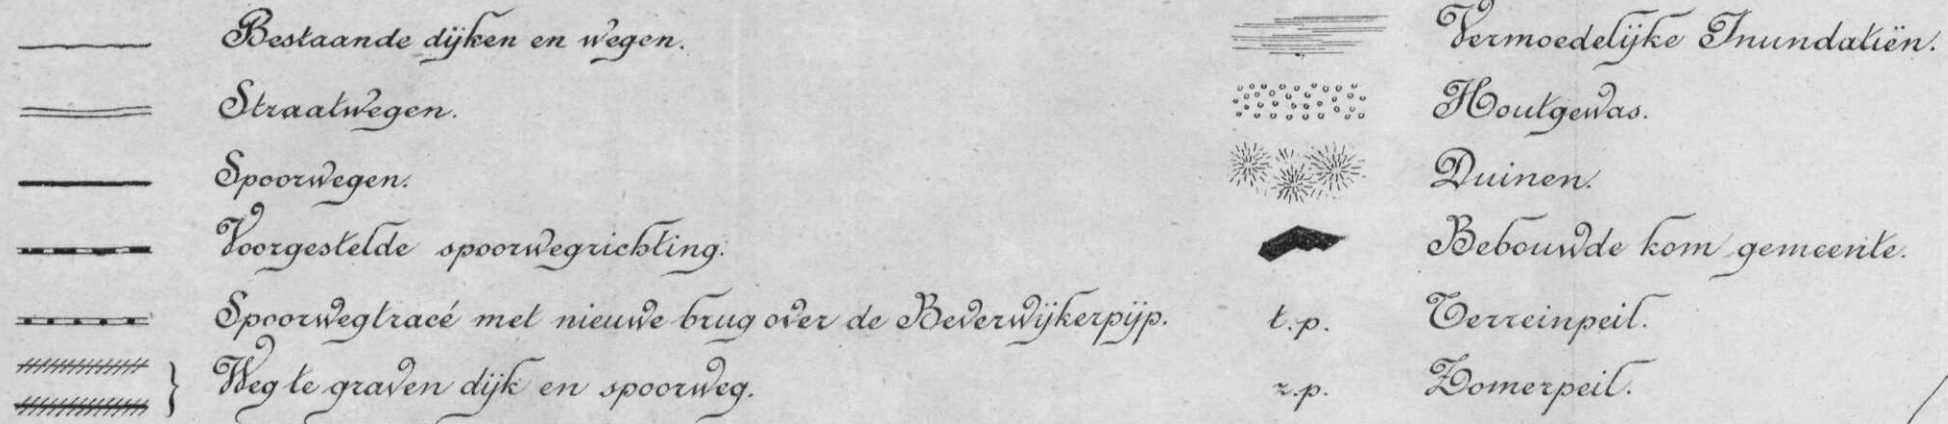 Bestaande dijken en wegen.
Straatwegen.
Spoorwegen.
Voorgestelde spoorwegrichting.
Spoorwegtracé met nieuwe brug over de Beverwijkerpijp.
Weg te graven dijk en spoorweg.
Vermoedelijke Inundatiën.
Houtgewas.
Duinen.
Bebouwde kom gemeente.
t.p. Terreinpeil.
z.p. Zomerpeil.